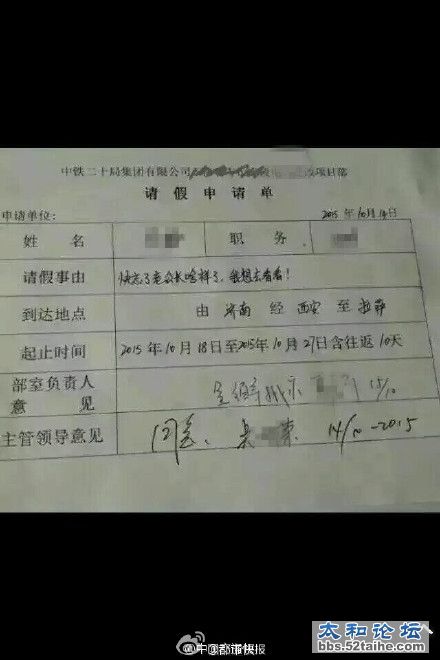 中铁二十局集团有限公司 项目部
请假申请单
申请单位： 2015年10月14日
姓名 职务
请假事由 快忘了老公长啥样了，我想去看看！
到达地点 由 济南 经 西安 至 拉萨
起止时间 2015年10月18日至2015年10月27日含往返10天
部室负责人
意见 15/10
主管领导意见 同意、 14/10-2015
@都市快报
太和论坛
bbs.52taihe.com